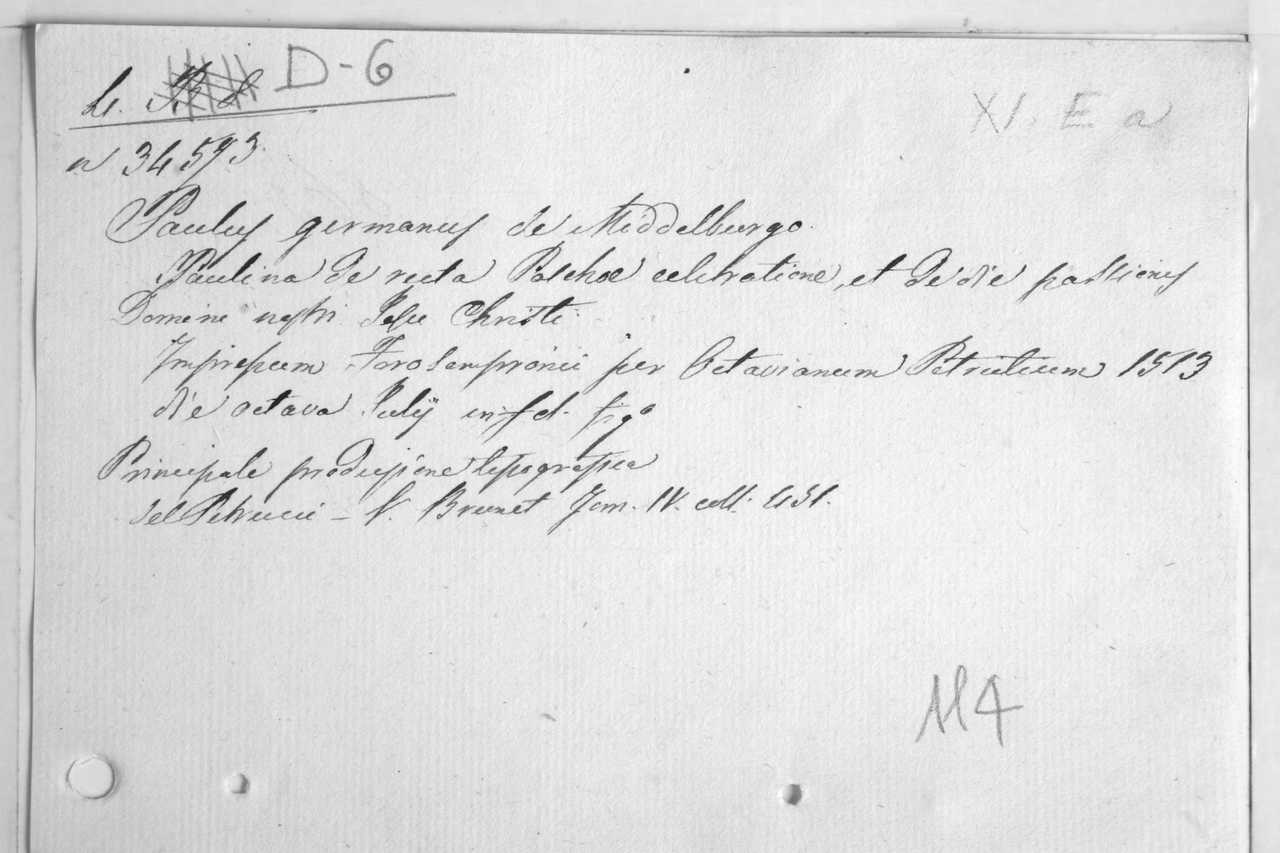 D-6
XI. E a
n 34593.
Paulus germanus de Middelburgo.
Paulina de recta Paschae celebratione, et de die passionis
Domini nostri Jesu Christi.
Impressum Forosempronii per Octavianum Petrutium 1513
die octava Julij in fol. figo
Principale produzione tipografica
del Petrucci - V. Brunet Tom. IV. coll. 451.
114